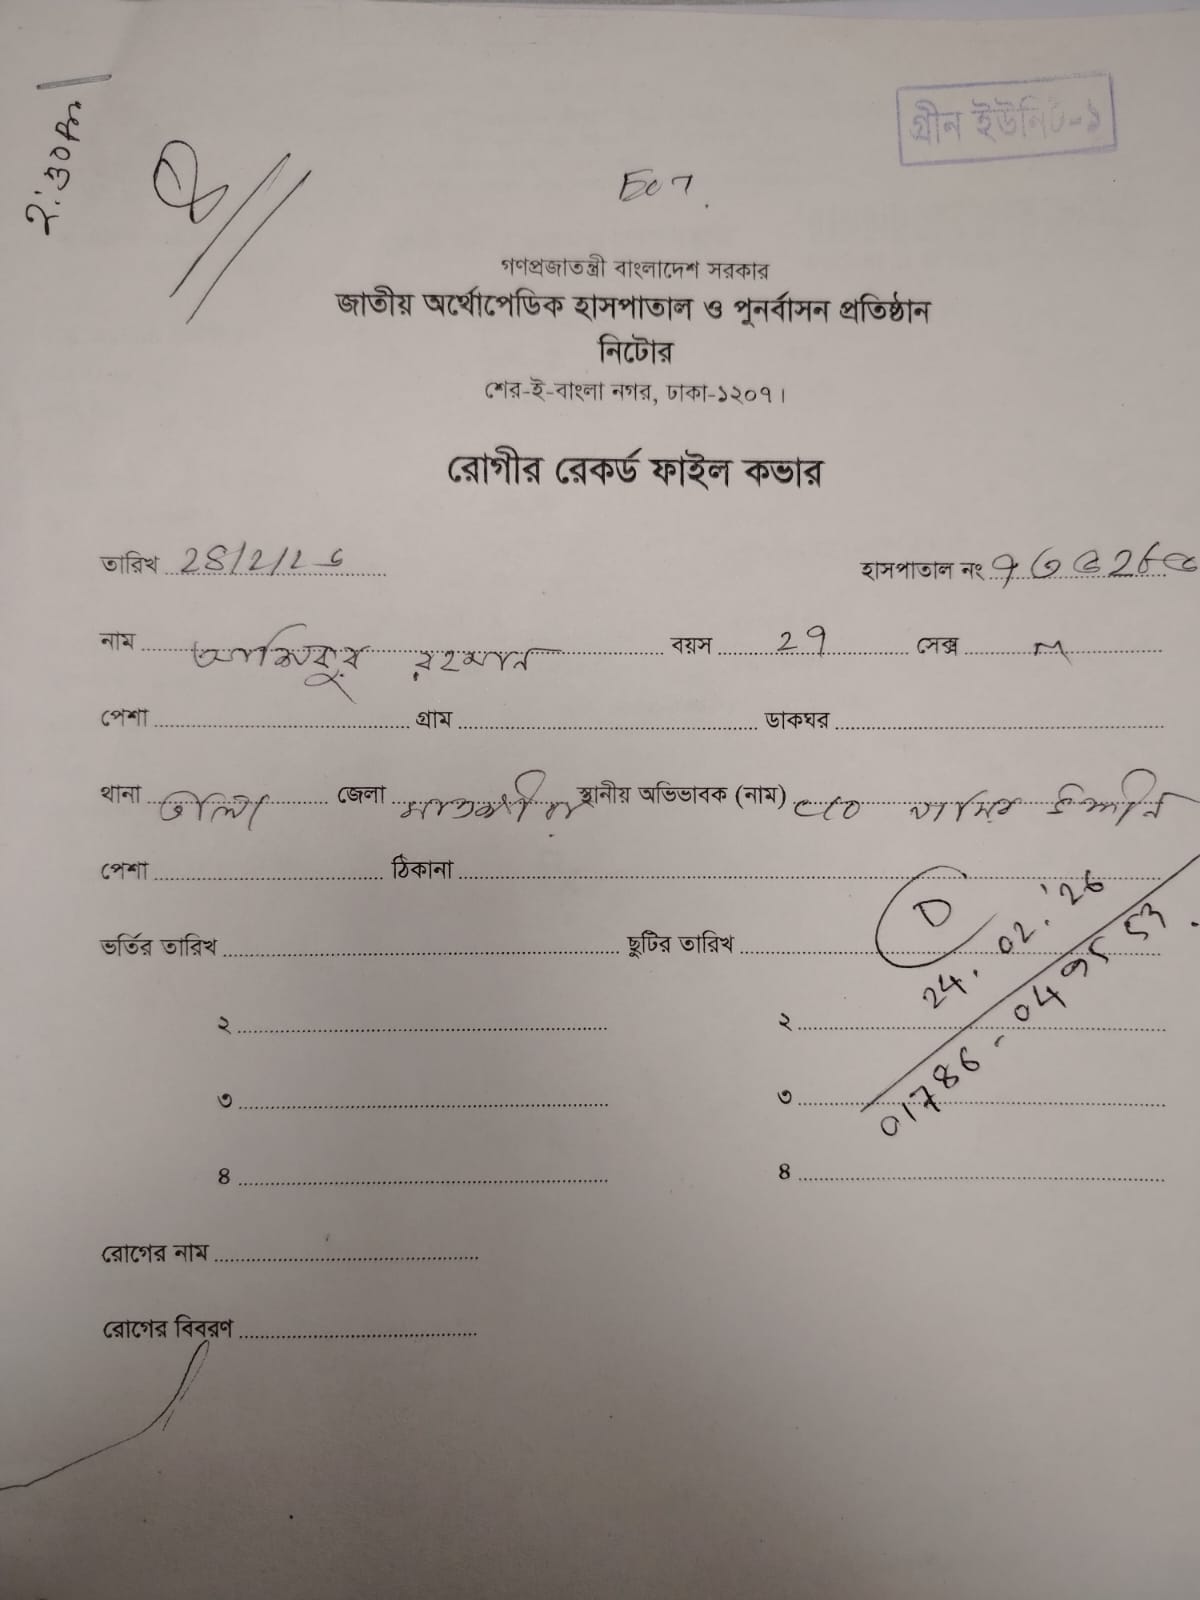 গ্রীন ইউনিট-১
2:30 Pm
গণপ্রজাতন্ত্রী বাংলাদেশ সরকার
জাতীয় অর্থোপেডিক হাসপাতাল ও পুনর্বাসন প্রতিষ্ঠান
নিটোর
শের-ই-বাংলা নগর, ঢাকা-১২০৭।
রোগীর রেকর্ড ফাইল কভার
তারিখ হাসপাতাল নং
নাম রহমান বয়স 29 সেক্স M
পেশা গ্রাম ডাকঘর
থানা তালা জেলা সাতক্ষীরা স্থানীয় অভিভাবক (নাম) C/O
পেশা ঠিকানা
ভর্তির তারিখ ছুটির তারিখ D
24.02.'26
২ ২
01786-049553
৩ ৩
৪ ৪
রোগের নাম
রোগের বিবরণ